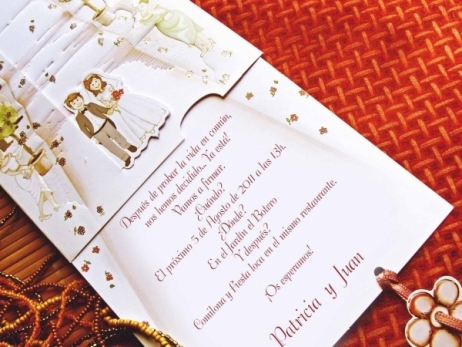 Después de probar la vida en común,
nos hemos decidido... Ya está!
Vamos a firmar.
¿Cuándo?
El próximo 5 de Agosto de 2011 a las 13h.
¿Dónde?
En el Jardín el Botero
Y después?
Comilona y Fiesta loca en el mismo restaurante.
¡Os esperamos!
Patricia y Juan